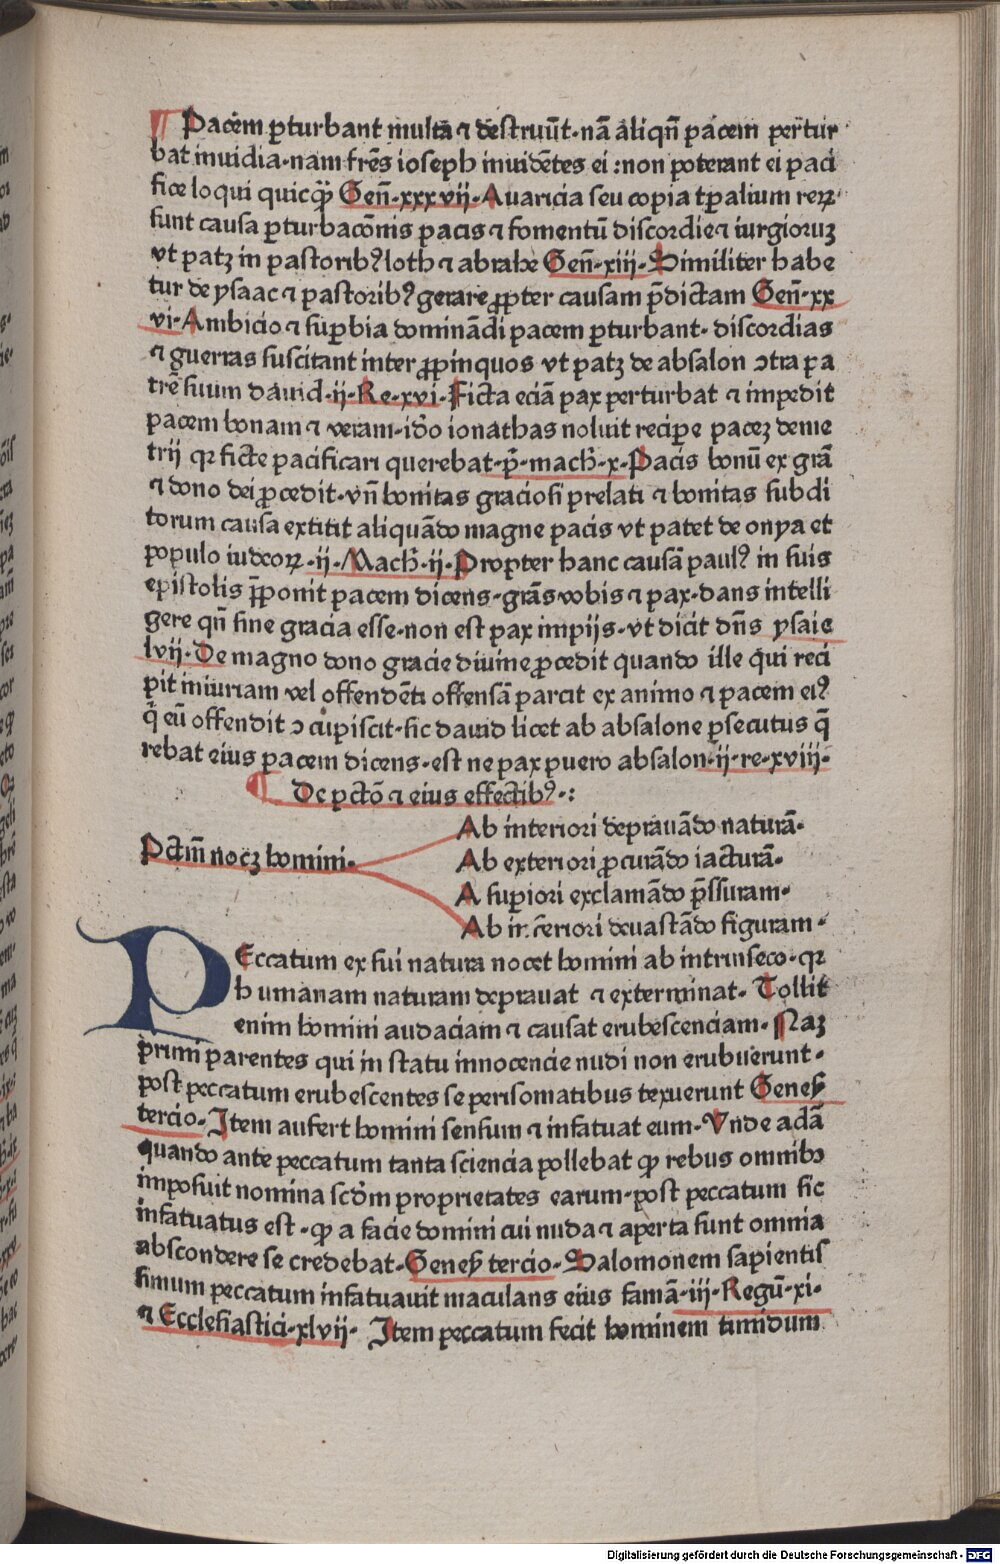 ¶ Pacem ꝑturbant multa ⁊ destruūt·nā aliqn̄ pacem pertur
bat inuidia·nam frēs ioseph inuidētes ei :non poterant ei paci
fice loqui quicq̄ Gen̄·xxxvii·Auaricia seu copia tꝑalium reꝝ·
sunt causa ꝑturbacōnis pacis ⁊ fomentū discordie ⁊ iurgioruʒ
vt patʒ in pastoribꝰ loth ⁊ abrahe Gen̄·xiii·Similiter habe
tur de ysaac ⁊ pastoribꝰ gerare ꝓpter causam p̄dictam Gen̄·xx
vi·Ambicio ⁊ suꝑbia dominādi pacem ꝑturbant· discordias
⁊ guerras suscitant inter ꝓpinquos vt patʒ de absalon ↄtra pa
trē suum dauid·ii·Re·xvi·Ficta eciā pax perturbat ⁊ impedit
pacem bonam ⁊ veram·ido̅ ionathas noluit recipe pacez deme
trij qꝛ ficte pacificari querebat·p̄·mach̄·x·Pacis bonū ex grā
⁊ dono dei ꝓcedit·vn̄ bonitas graciosi prelati ⁊ bonitas subdi
torum causa extitit aliquādo magne pacis vt patet de onya et
populo iudeoꝝ·ii·Mach̄·ii·Propter hanc causā paulꝰ in suis
epistolis p̄ponit pacem dicens·grās vobis ⁊ pax·dans intelli
gere qn̄ sine gracia esse·non est pax impijs·vt dicit dn̄s ysaie
lvii·De magno dono gracie diuine ꝓcedit quando ille qui reci
pit iniuriam vel offendēti offensā parcit ex animo ⁊ pacem eiꝰ
q̇ eū offendit ↄcupiscit·sic dauid licet ab absalone ꝑsecutus q̄
rebat eius pacem dicens·est ne pax puero absalon·ii·re·xviii·
¶ De pctō ⁊ eius effectibꝰ·:
Pctm̄ nocʒ homini·
Ab interiori deprauādo naturā·
Ab exteriori ꝓcurādo iacturā·
A suꝑiori exclamādo p̄ssuram·
Ab inferiori deuastādo figuram·
PEccatum ex sui natura nocet homini ab intrinseco·qꝛ
humanam naturam deprauat ⁊ exterminat· Tollit
enim homini audaciam ⁊ causat erubescenciam·Naʒ
primi parentes qui in statu innocencie nudi non erubuerunt·
post peccatum erubescentes se perisomatibus texuerunt Genes̄
tercio·Item aufert homini sensum ⁊ infatuat eum·Vnde adā
quando ante peccatum tanta sciencia pollebat ꝙ rebus omnibꝫ
imposuit nomina scd̄m proprietates earum·post peccatum sic
infatuatus est·ꝙ a facie domini cui nuda ⁊ aperta sunt omnia
abscondere se credebat·Genes̄ tercio·Salomonem sapientis
simum peccatum infatuauit maculans eius famā·iii·Regū·xi·
⁊ Ecclesiastici·xlvii· Item peccatum fecit hominem timidum
Digitalisierung gefördert durch die Deutsche Forschungsgemeinschaft - DFG